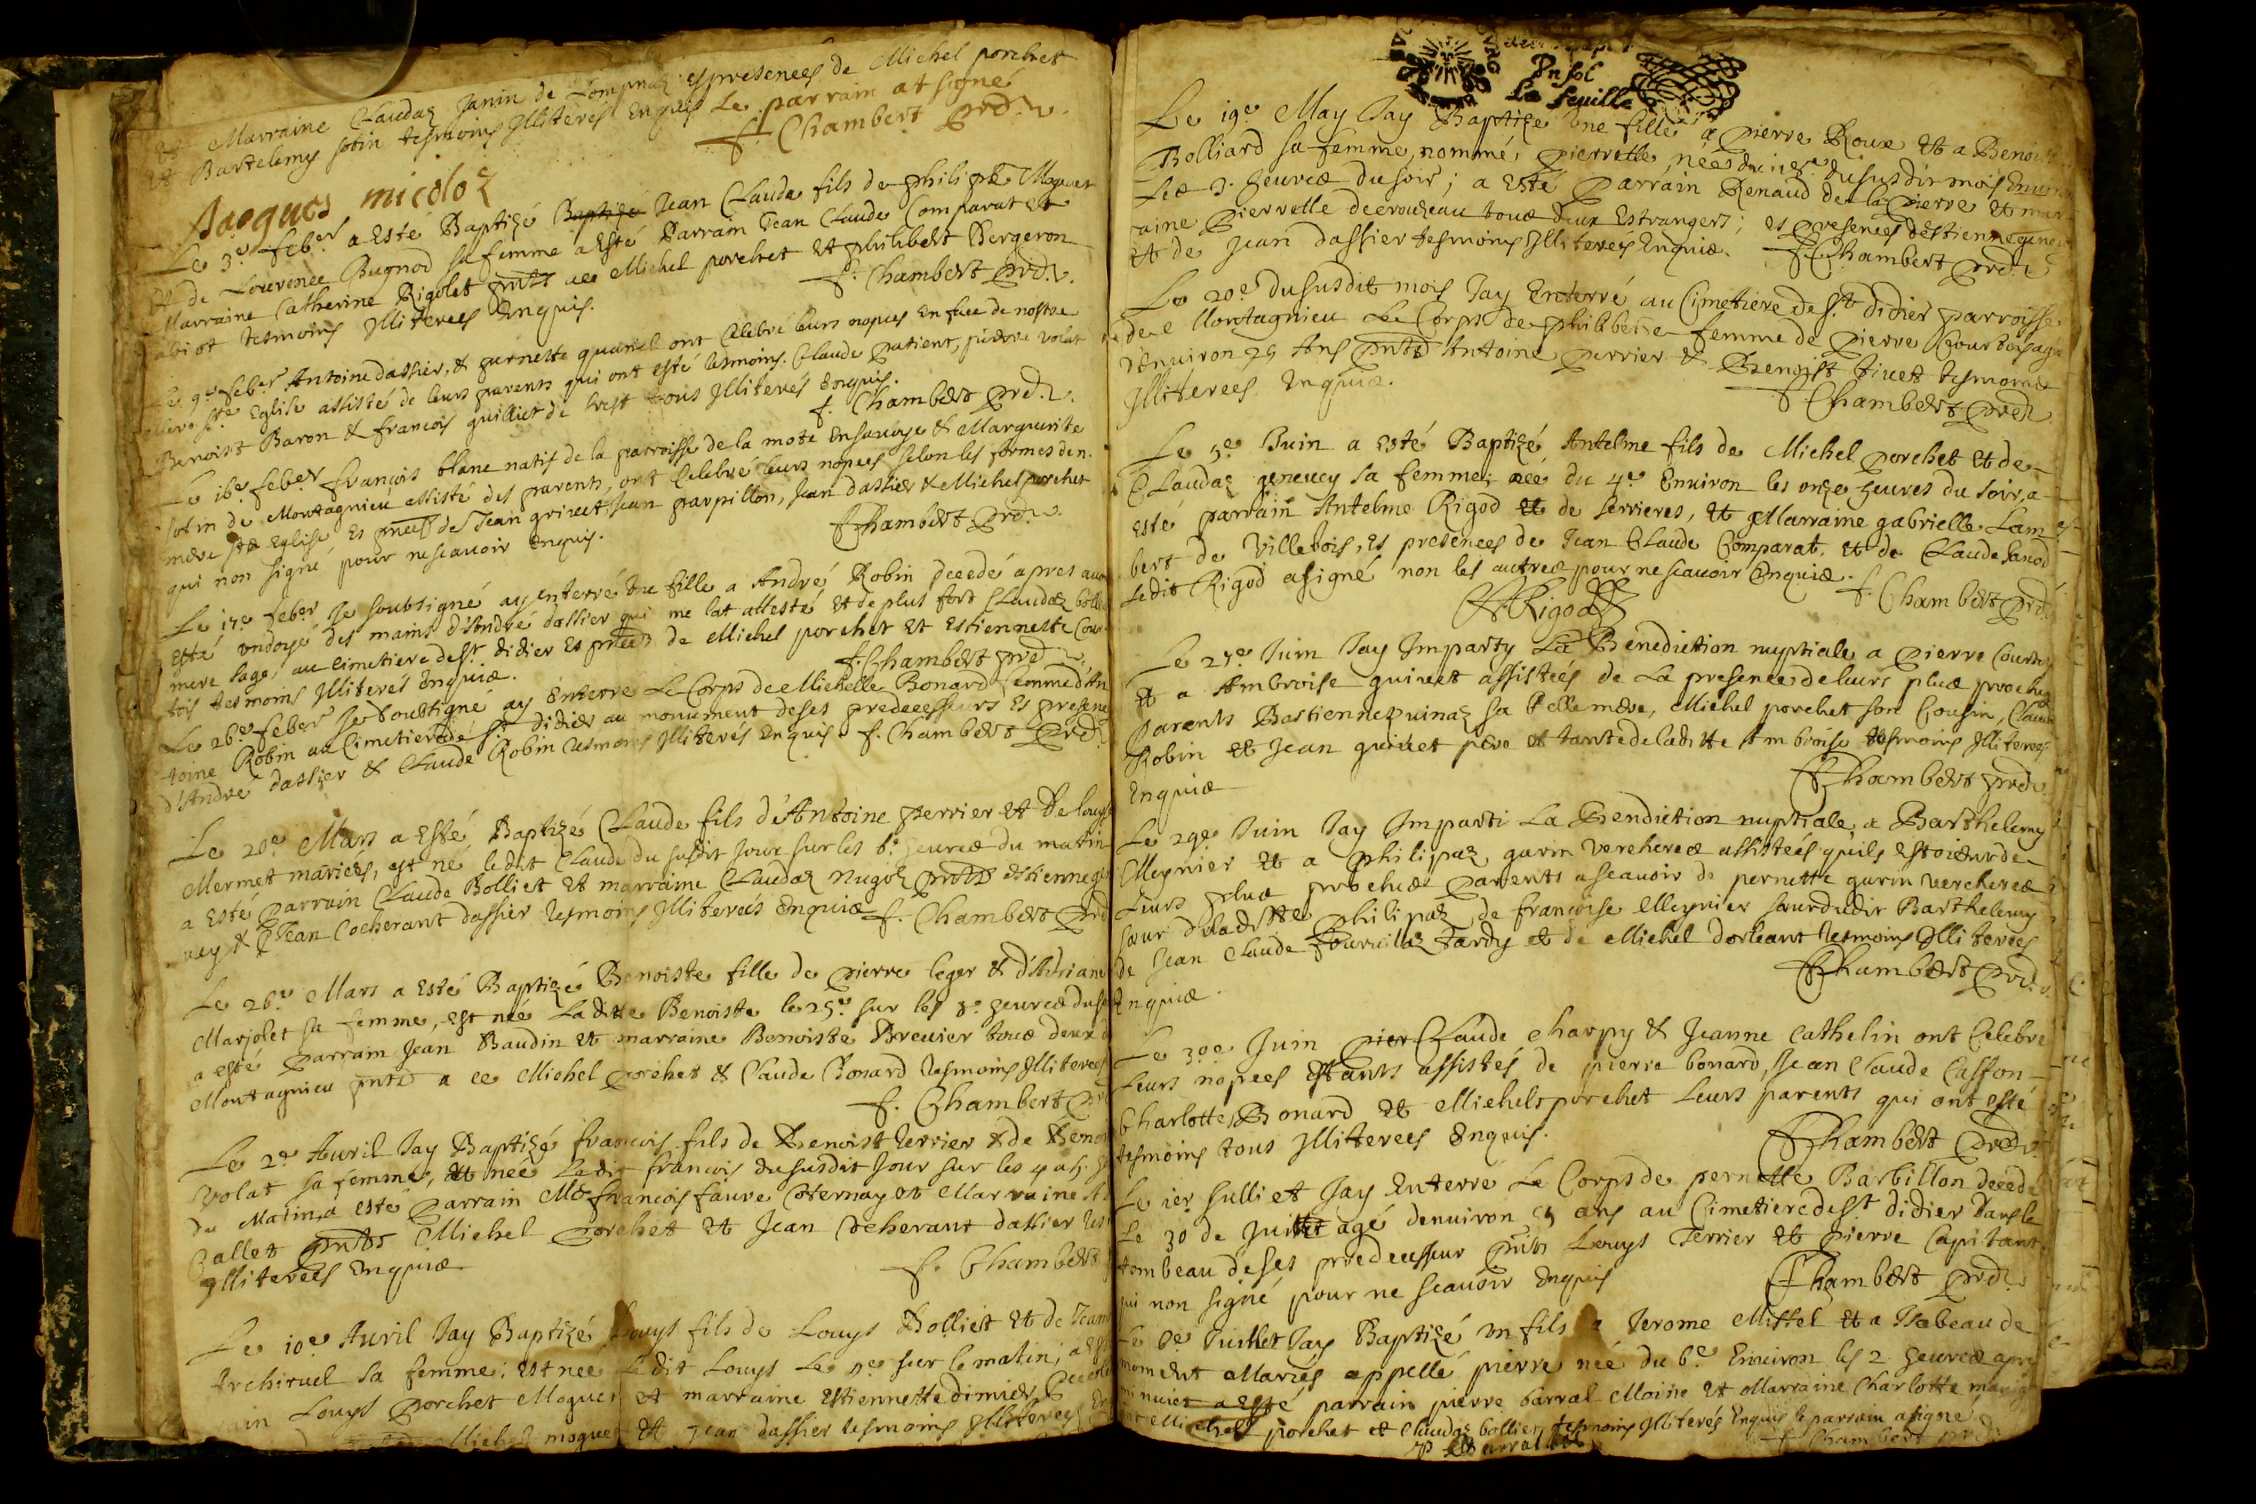 et Marraine Claudaz Janin de Lompnaz es presences de Michel porchet
et Bartelemy sotin tesmoins Illiterés Enquis Le parrain at signé
f. Chambert prd. v.
Jacques micoloz
Le 3e feber a Esté Baptizé Baptizé Jean Claude fils de philipe Moguet
et de Lourence Bugnod sa femme a Esté Parrain Jean Claude Comparat et
Marraine Catherine Rigolet pnts a ce Michel porchet et philibert Bergeron
abiot tesmoins Illiterees Enquis.
f. Chambert prd. v.
Le 9e feber Antoine dassier, & pernette quanel ont Celebré leurs nopces En face de nostre
mere Ste Eglise assisté de leurs parents qui ont esté tesmoins. Claude patient, pierre volat
Benoist Baron & francois quilliet de tous Illiterés Enquis.
f. Chambert prd. v.
Le 16e feber francois blanc natif de la parroisse de la mote En savoye & Marguerite
sotin de Montagnieu assisté des parents, ont Celebré leurs nopces selon les formes de n.
mere ste Eglise Es pnces de Jean grivet Jean parpillon, Jean dassier & Michel porchet
qui non signé pour ne scavoir Enquis.
f Chambert Prd. v.
Le 17e feber Je soubsigné ay enterré Une fille a André Robin decedé apres avoir
Esté undoyé des mains d'André dassier qui me lat attesté et de plus fort Claudaz
mere sage, au Cimetiere de St didier Es pnces de Michel porchet et Estiennette Cour
tois tesmoins Illiterés Enquis.
f. Chambert prd. v.
Le 26e feber Je soubsigné ay Enterré Le Corps de Michelle Bonard femme d'An
toine Robin au Cimetiere de St didier au monument de ses predecesseurs Es presence
d'André dassier & Claude Robin tesmoins Illiterés Enquis. f. Chambert Prd.
Le 20e Mars a Esté Baptizé Claude fils d'Antoine perrier et de Louyse
Mermet mariees, est né ledit Claude du susdit Jour sur les 6. heures du matin
a Esté parrain Claude Bolliet et marraine Claudaz nugoz pnts Estienne ge
nevy & Jean Cocherant dassier tesmoins Illiterés Enquis f. Chambert Prd
Le 26e Mars a Esté Baptizé Benoiste fille de pierre leger & d'Adriane
Marjolet sa femme, est née Ladite Benoiste le 25e sur les 8. heures du soir
a esté parrain Jean Baudin et marraine Benoiste Brevier tous deux de
Montagnieu pnts a ce Michel porchet & Claude Bonard tesmoins Illiterees
f. Chambert Prd
Le 2e Avril Jay Baptizé francois fils de Benoist terrier & de Benoi
Volat sa femme, et né Ledit francois du susdit Jour sur les 4 a 5. h
du Matin, a esté parrain Mr francois faure Cternay et Marraine
Callet pnts Michel porchet et Jean Cocherant dassier tes
Illiterees Enquis
f. Chambert
Le 10e Avril Jay Baptizé Louys fils de Louys Bolliet et de Jeann
Archiruel sa femme; est née Ledit Louys Le sur le matin; a Est
rain Louys porchet Moguet et marraine Estiennette dimier
Michel moguet et Jean dassier tesmoins Illiterees
Un sol
La feuille
Le 19e May Jay Baptize Une fille a pierre Roux et a Benoiste
Bolliard sa femme, nommé pierrette, née du susdit mois Environ
Les 3. heures du soir; a Esté Parrain Renaud de la pierre et mar
raine Pierrette decrouzeau tous deux Estrangers; es presences destienne genevy
et de Jean dassier tesmoins Illiterees Enquis. f. Chambert prd. v
Le 20e du susdit mois Jay Enterré au Cimetiere de St didier parroisse
de Montagnieu Le Corps de philiberte femme de pierre Courtois agé
denviron 25 Ans pnts Antoine perrier & Benoist tivet tesmoins
Illiterees Enquis.
f Chambert Prd.
Le 5e Juin a esté Baptizé Antelme fils de Michel porchet et de
Claudaz genevy sa femme; née du 4e Environ les onze heures du soir, a
esté parrain Antelme Rigod et de Serrieres, et Marraine gabrielle Lam
bert de Villebois, es presences de Jean Claude Comparat, et de Claude Janod
Ledit Rigod a signé non les autres pour ne scavoir Enquis.
A Rigod
f. Chambert Prd.
Le 27e Juin Jay Imparty La Benediction nuptiale a pierre Courtoy
et a Ambroise guivet assistées de La presence de leurs plus proches
parents Bastienne quinaz sa bellemere, Michel porchet son Cousin, Claude
Robin et Jean guivet pere et tante de ladite Ambroise tesmoins Illiterees
Enquis
f Chambert prd.
Le 29e Juin Jay Imparti La Bendiction nuptiale a Barthelemy
Meynier et a philipaz garin vercheres assistées quils estoient de
Leurs plus proches parents a scavoir de pernette garin vercheres
soeur deladitte philipaz de francoise Meynier soeur dudit Barthelemy
de Jean Claude fourvillaz tardy et de Michel dorleant tesmoins Illiterees
Enquis.
f Chambert Prd. v.
Le 30e Juin pier Claude Charpy & Jeanne Cathelin ont Celebre
Leurs nopces Estants assistés de pierre bonard, Jean Claude Casson
Charlotte Bonard et Michel porchet Leurs parents qui ont esté
tesmoins tous Illiterees Enquis.
f Chambert Prd. v
Le 1er Julliet Jay Enterré Le Corps de pernette Barbillon decedé
Le 30 de Juillet agé denviron ans au Cimetiere de St didier dans le
tombeau de ses predecesseur pnts Louys Terrier et pierre Capitant
qui non signé pour ne scavoir Enquis
f Chambert prd.
Le 8e Juillet Jay Baptizé un fils a Jerome Mistel et a Isabeau de
moment Mariés appellé pierre né du 6e Environ les 2 heures apres
minuict a esté parrain pierre barral Moine et Marraine Charlotte
pnt Michel porchet et Claudaz bollier, tesmoins Illiterés Enquis le parrain a signé
P Barral
f Chambert prd